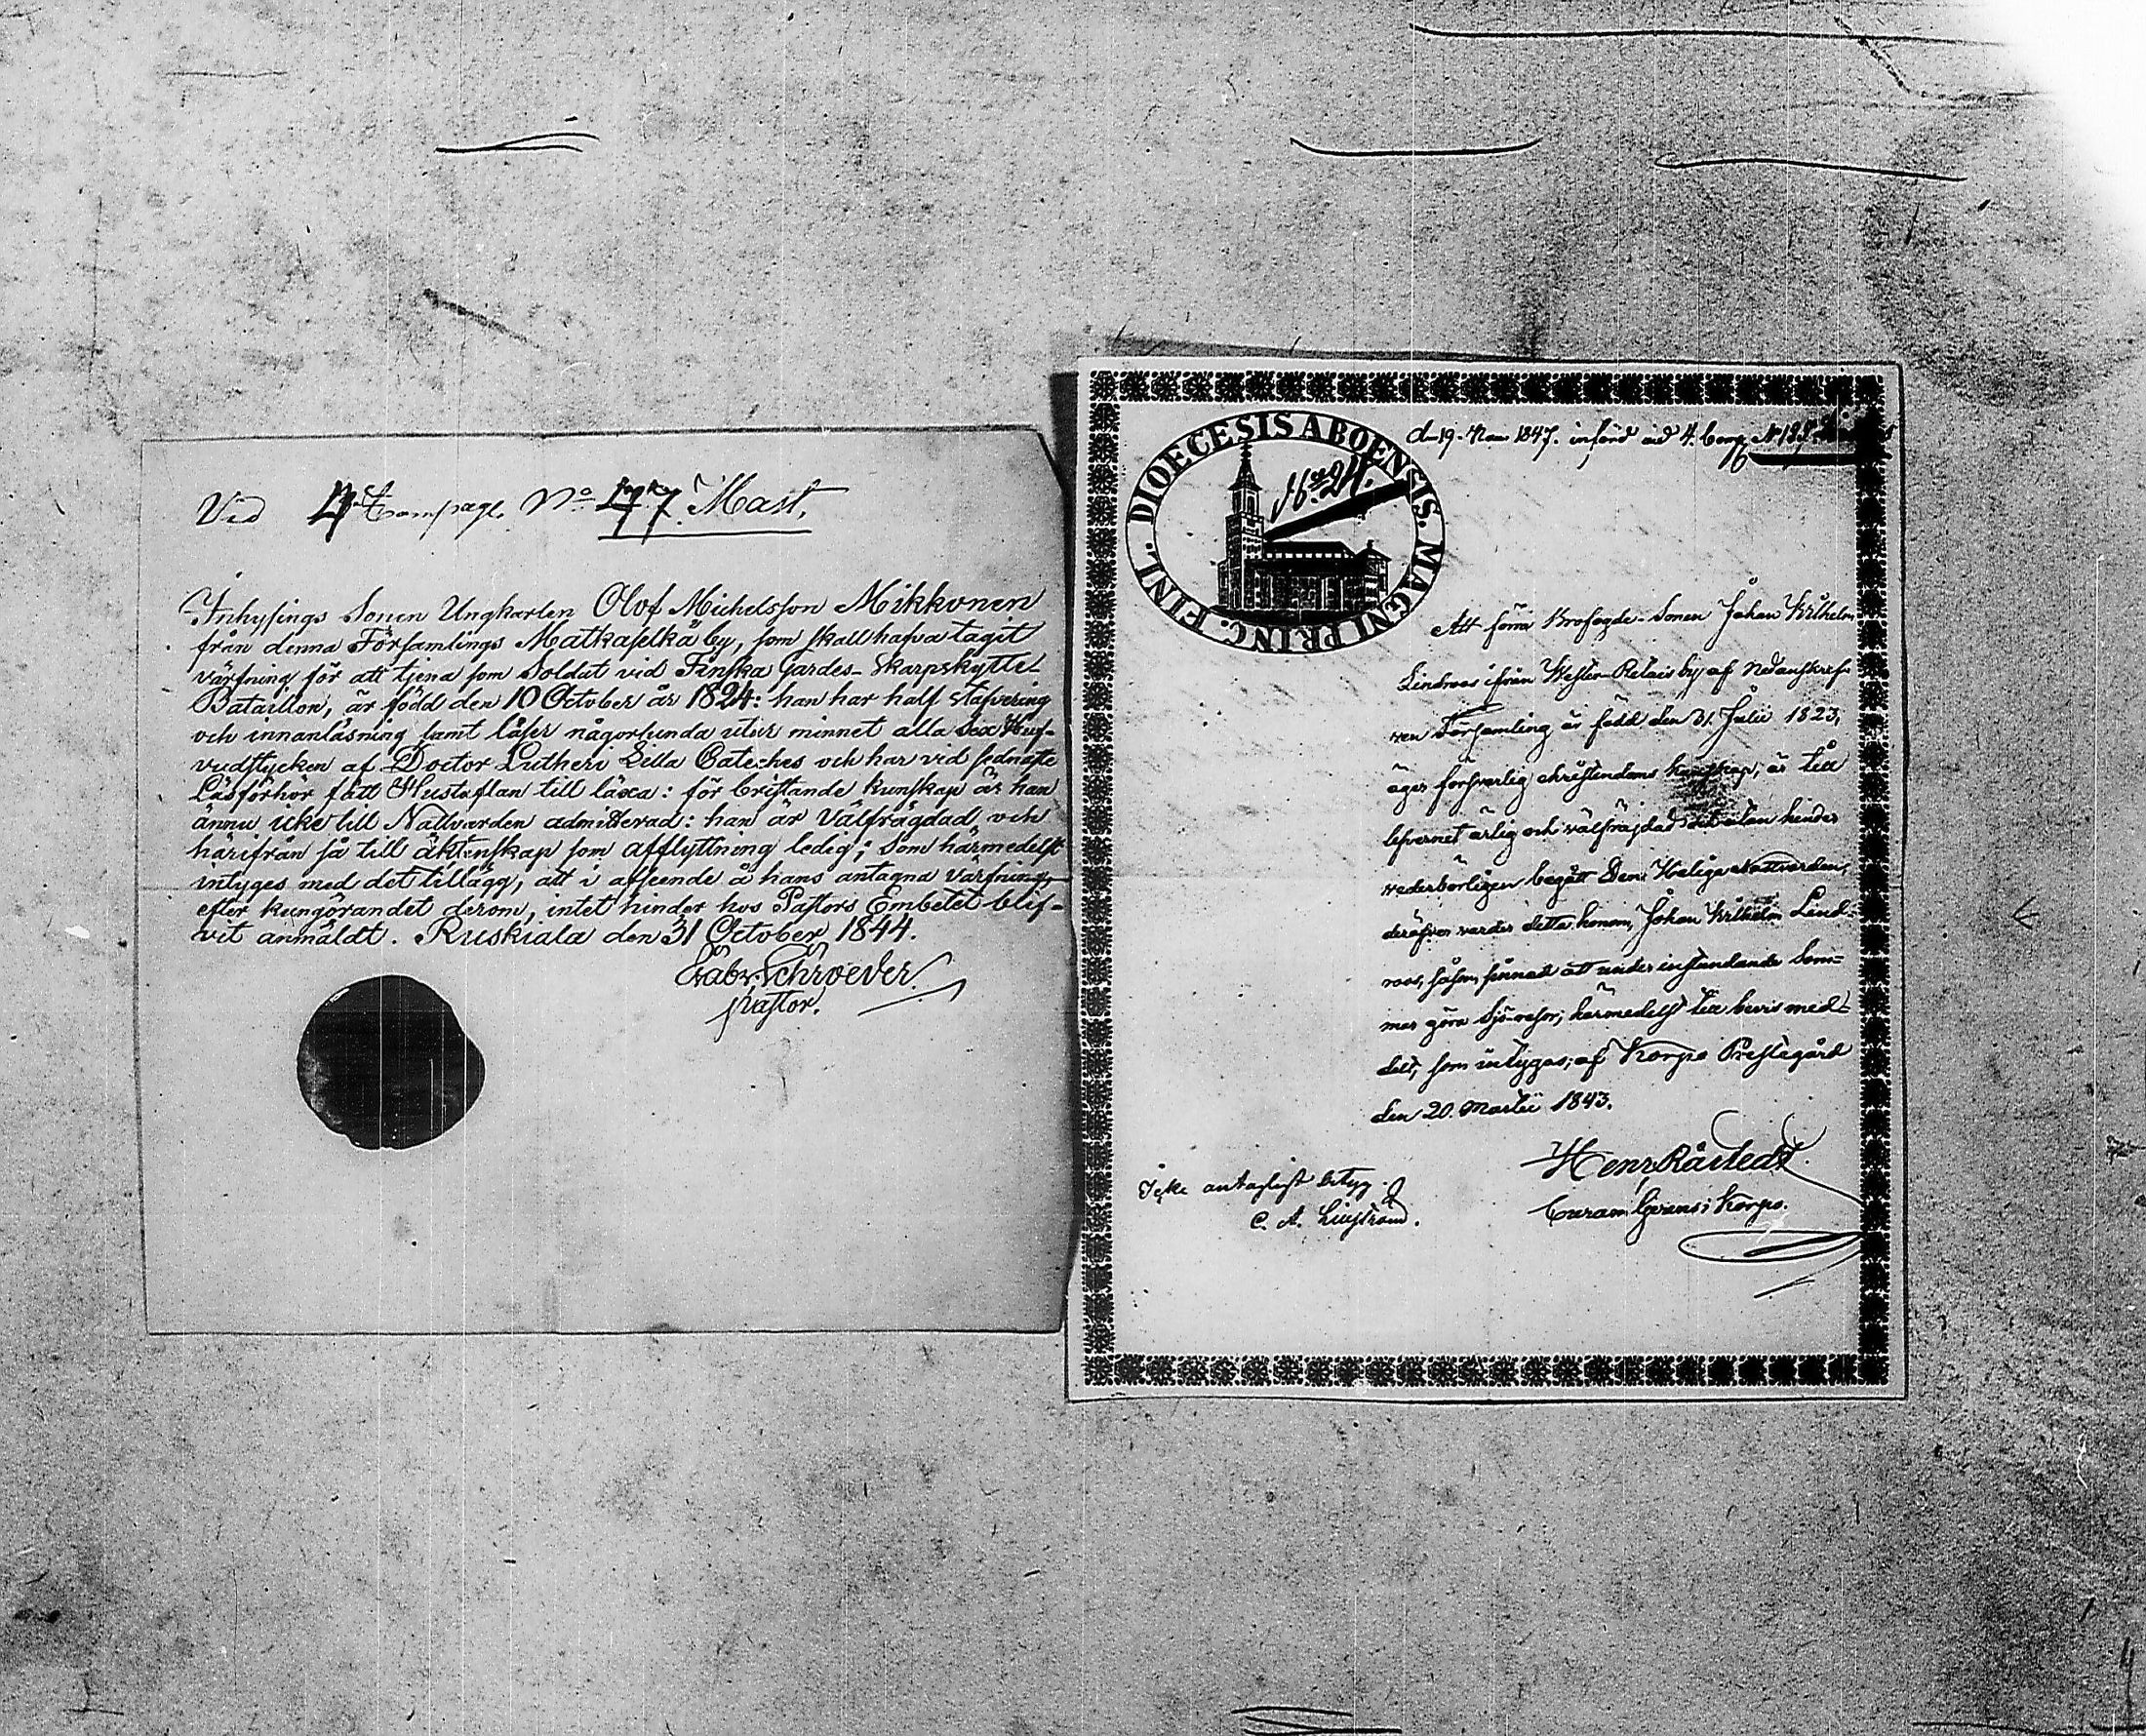 Vid 4de Compagl. No 77. Mast.
Inhysings Sonen Ungkarlen Olof Michelsson Mikkonen
från denna Församlings Matkaselkä by, som skall hafva tagit
värfning för att tjena som Soldat vid Finska Gardes-Skarpskytte-
Bataillon, är född den 10 October år 1824: han har half stafvering
och innanläsning samt läser någorlunda utur minnet alla Sex Huf-
vudstycken af Doctor Lutheri Lilla Cateches och har vid sednaste
Läsförhör fått Hustaflan till läxa: för bristande kunskap är han
ännu icke till Nattvarden admitterad: han är Välfrägdad och
härifrån så till äktenskap som afflyttning ledig; Som härmedelst
intyges med det tillägg, att i afseende å hans antagna värfning,
efter kungörandet derom, intet hinder hos Pastors Embetet blif-
vit anmäldt. Ruskiala den 31 October 1844.
Gabr. Schroever.
Pastor.
DIOECESIS ABOENSIS. MAGNI PRINC. FINL.
No 24.
d. 19. Nov 1847. införd vid 4. Comp. N
16
Att förra Krofogde-Sonen Johan Wilhelm
Lindroos ifrån Wester-Retais by af Nedanskref-
ven Församling är född den 31. Julii 1823,
äger försvarlig christendoms kunskap, är till
lefvernet ärlig och välfräjdad och utan hinder
vederbörligen begått Den Heliga Nattvarden,
deröfver varder detta honom, Johan Wilhelm Lind-
roos, såsom sinnad att under instundande Som-
mar göra Sjö-resor; härmedelst till bevis med-
delt, som intygas; af Korpo Prestegård
den 20. Martii 1843.
Henr. Råstedt.
Curam Gerens i Korpo.
Icke antagligt betyg.
C. A. Liljstrand.